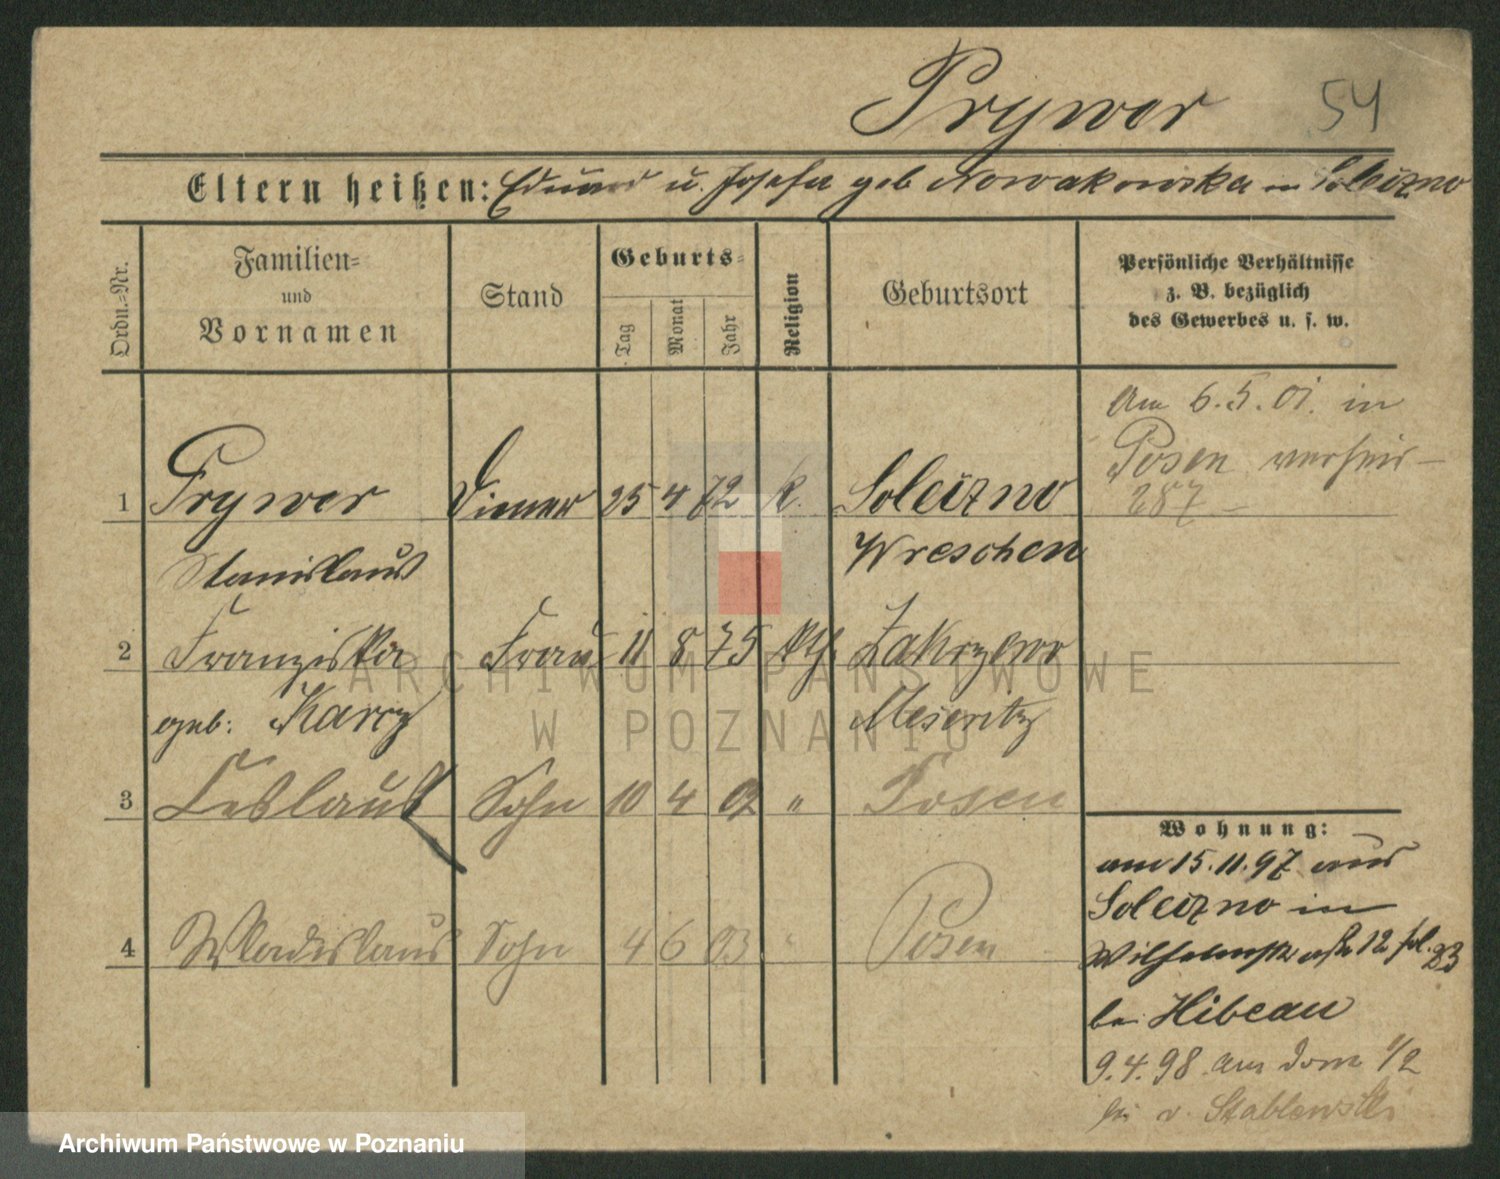 Prywer 54
Eltern heißen: Eduard u. Josefa geb Nowakowska in Soleczno
Ordn.-Nr.
Familien-
und
Vornamen
Stand
Geburts-
Tag
Monat
Jahr
Religion
Geburtsort
Persönliche Verhältnisse
z. B. bezüglich
des Gewerbes u. s. w.
Am 6.5.01. in
Posen verheir-
287
1 Prywer Diener 25 4 72 k. Soleczno
Stanislaus Wreschen
2 Franziska Frau 11 8 75 kth. Zakrzewo
geb: Karcz Meseritz
3 Ceslaus Sohn 10 4 02 " Posen
4 Wladislaus Sohn 4 6 03 " Posen
Wohnung:
am 15.11.97 aus
Soleczno in
Wilhelmstr 12
bei Hibeau
9.4.98 am Dom 1/2
bei v. Stablewski
ARCHIWUM PAŃSTWOWE
W POZNANIU
Archiwum Państwowe w Poznaniu